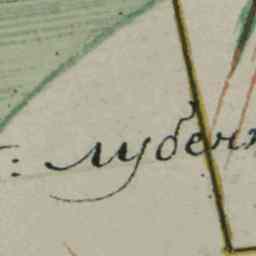 : лубен